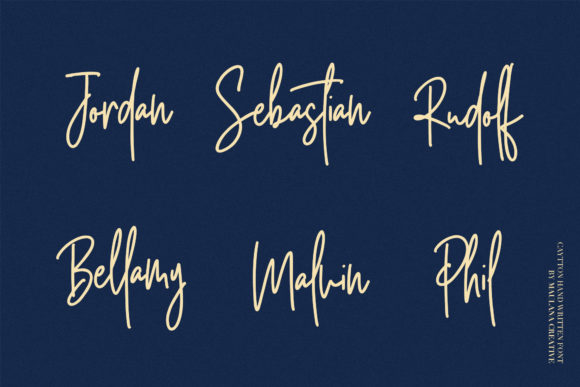 Jordan
Sebastian
Rudolf
Bellamy
Malvin
Phil
CAYTTON HAND WRITTEN FONT
BY MAULANA CREATIVE